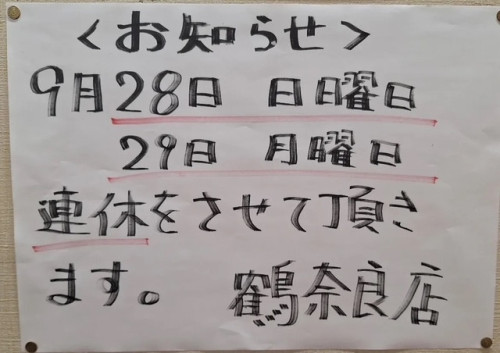 <お知らせ>
9月28日 日曜日
29日 月曜日
連休をさせて頂き
ます。 鶴奈良店